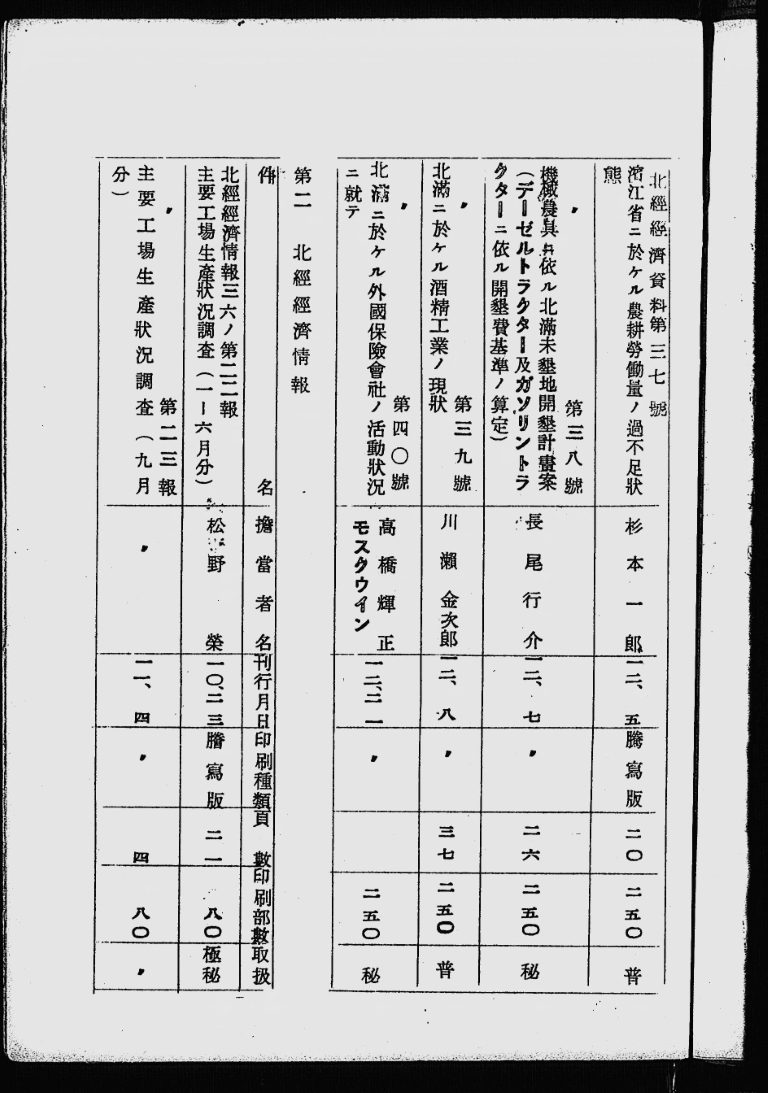 北經經濟資料第三七號
濱江省ニ於ケル農耕勞働量ノ過不足狀
態
杉本一郎
一二、五
謄寫版
二〇
二五〇
普
〃 第三八號
機械農具ニ依ル北滿未墾地開墾計畫案
（デーゼルトラクター及ガソリントラ
クターニ依ル開墾費基準ノ算定）
長尾行介
一二、七
〃
二六
二五〇
秘
〃 第三九號
北滿ニ於ケル酒精工業ノ現狀
川瀨金次郎
一二、八
〃
三七
二五〇
普
〃 第四〇號
北滿ニ於ケル外國保險會社ノ活動狀況
ニ就テ
高橋輝正
モスクウイン
一二、二一
〃
二五〇
秘
第二 北經經濟情報
件名
擔當者名
刊行月日
印刷種類
頁數
印刷部數
取扱
北經經濟情報三六ノ第二二報
主要工場生產狀況調查（一－六月分）
松野榮
一〇、二三
謄寫版
二一
八〇
極秘
〃 第二三報
主要工場生產狀況調查（九月
分）
〃
一一、四
〃
四
八〇
〃